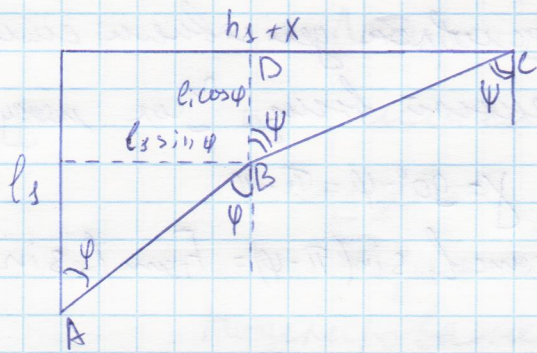 h₁ + x
D
C
l₁ cos φ
ψ
ψ
l₃ sin φ
l₃
B
φ
φ
A